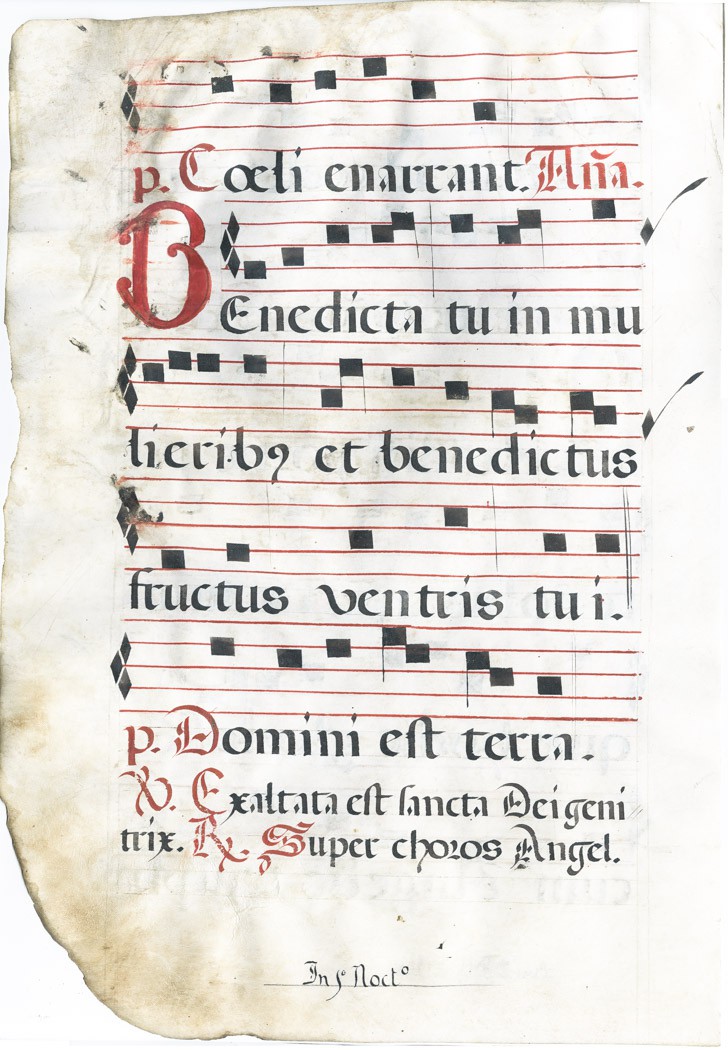 p. Cœli enarrant. Añã.
BEnedicta tu in mu
lieribꝰ et benedictus
fructus ventris tui.
p. Domini est terra.
℣. Exaltata est sancta Dei geni
trix. ℟. Super choros Angel.
In Noct⁰